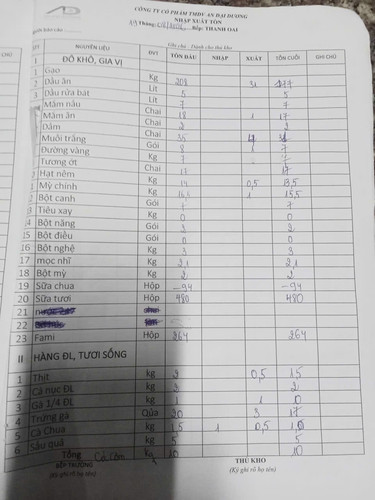 CÔNG TY CỔ PHẦN TMDV AN ĐẠI DƯƠNG
NHẬP XUẤT TỒN
Bếp: THANH ĐẠI
Ghi chú : Dành cho thủ kho
STT NGUYÊN LIỆU ĐVT TỒN ĐẦU NHẬP XUẤT TỒN CUỐI GHI CHÚ
I ĐỒ KHÔ, GIA VỊ
1 Gạo Kg 208
2 Dầu ăn Lít 5 5
3 Dầu rửa bát Lít 7 7
Mắm nấu Chai 18 1 17
Mắm ăn Chai 2 2
Dấm Chai 35
Muối trắng Gói 8 1 7
Đường vàng Kg 7 7
Tương ớt Chai 17 17
Hạt nêm Kg 14 0,5 13,5
Mỳ chính Kg 16,5 1 15,5
2 Bột canh Gói 7 7
3 Tiêu xay Kg 0 0
4 Bột năng Gói 2 2
15 Bột điều Gói 0 0
16 Bột nghệ Kg 3 3
17 mọc nhĩ Kg 2,1 2,1
18 Bột mỳ Kg 2 2
19 Sữa chua Hộp -94 -94
20 Sữa tươi Hộp 480 480
21
22
23 Fami Hộp 264 264
II HÀNG ĐL, TƯƠI SỐNG
1 Thịt kg 2 0,5 1,5
2 Cá nục ĐL kg 2 2
3 Gà 1/4 ĐL kg 1 1 0
4 Trứng gà Qủa 20 3 17
5 Cà Chua kg 1,5 1 0,5
6 Sấu quả kg 5 5
Cá Cơm kg 10 10
BẾP TRƯỞNG THỦ KHO
(Ký ghi rõ họ tên) (Ký ghi rõ họ tên)